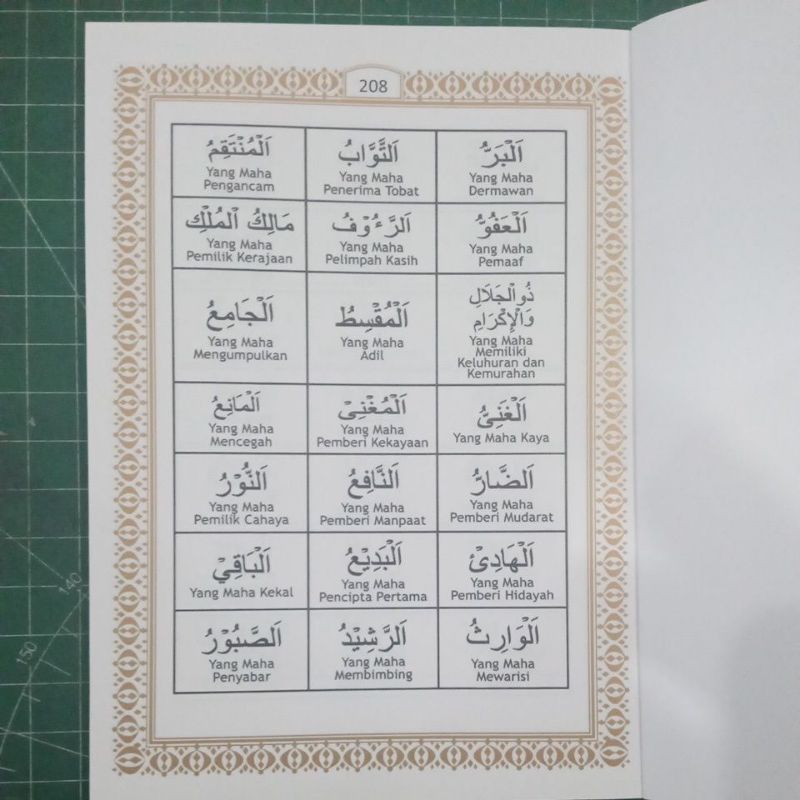 208
اَلْبَرُّ
Yang Maha
Dermawan
اَلتَّوَّابُ
Yang Maha
Penerima Tobat
اَلْمُنْتَقِمُ
Yang Maha
Pengancam
اَلْعَفُوُّ
Yang Maha
Pemaaf
اَلرَّءُوْفُ
Yang Maha
Pelimpah Kasih
مَالِكُ الْمُلْكِ
Yang Maha
Pemilik Kerajaan
ذُوالْجَلَالِ
وَالْاِكْرَامِ
Yang Maha
Memiliki
Keluhuran dan
Kemurahan
اَلْمُقْسِطُ
Yang Maha
Adil
اَلْجَامِعُ
Yang Maha
Mengumpulkan
اَلْغَنِيُّ
Yang Maha Kaya
اَلْمُغْنِىْ
Yang Maha
Pemberi Kekayaan
اَلْمَانِعُ
Yang Maha
Mencegah
اَلضَّارُّ
Yang Maha
Pemberi Mudarat
اَلنَّافِعُ
Yang Maha
Pemberi Manpaat
اَلنُّوْرُ
Yang Maha
Pemilik Cahaya
اَلْهَادِئْ
Yang Maha
Pemberi Hidayah
اَلْبَدِيْعُ
Yang Maha
Pencipta Pertama
اَلْبَاقِيْ
Yang Maha Kekal
اَلْوَارِثُ
Yang Maha
Mewarisi
اَلرَّشِيْدُ
Yang Maha
Membimbing
اَلصَّبُوْرُ
Yang Maha
Penyabar
140
150